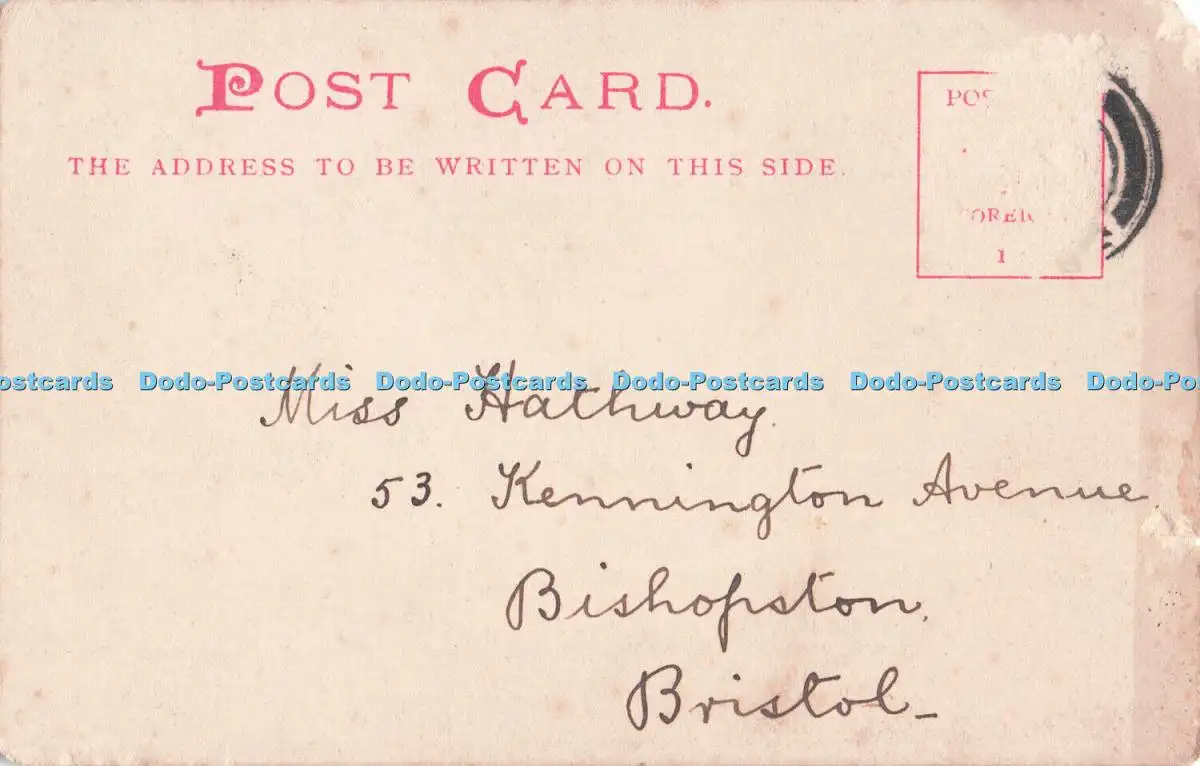 POST CARD.
THE ADDRESS TO BE WRITTEN ON THIS SIDE.
1
ostcards Dodo-Postcards Dodo-Postcards Dodo-Postcards Dodo-Postcards Dodo-Po
Miss Hathway.
53. Kennington Avenue
Bishopston,
Bristol_